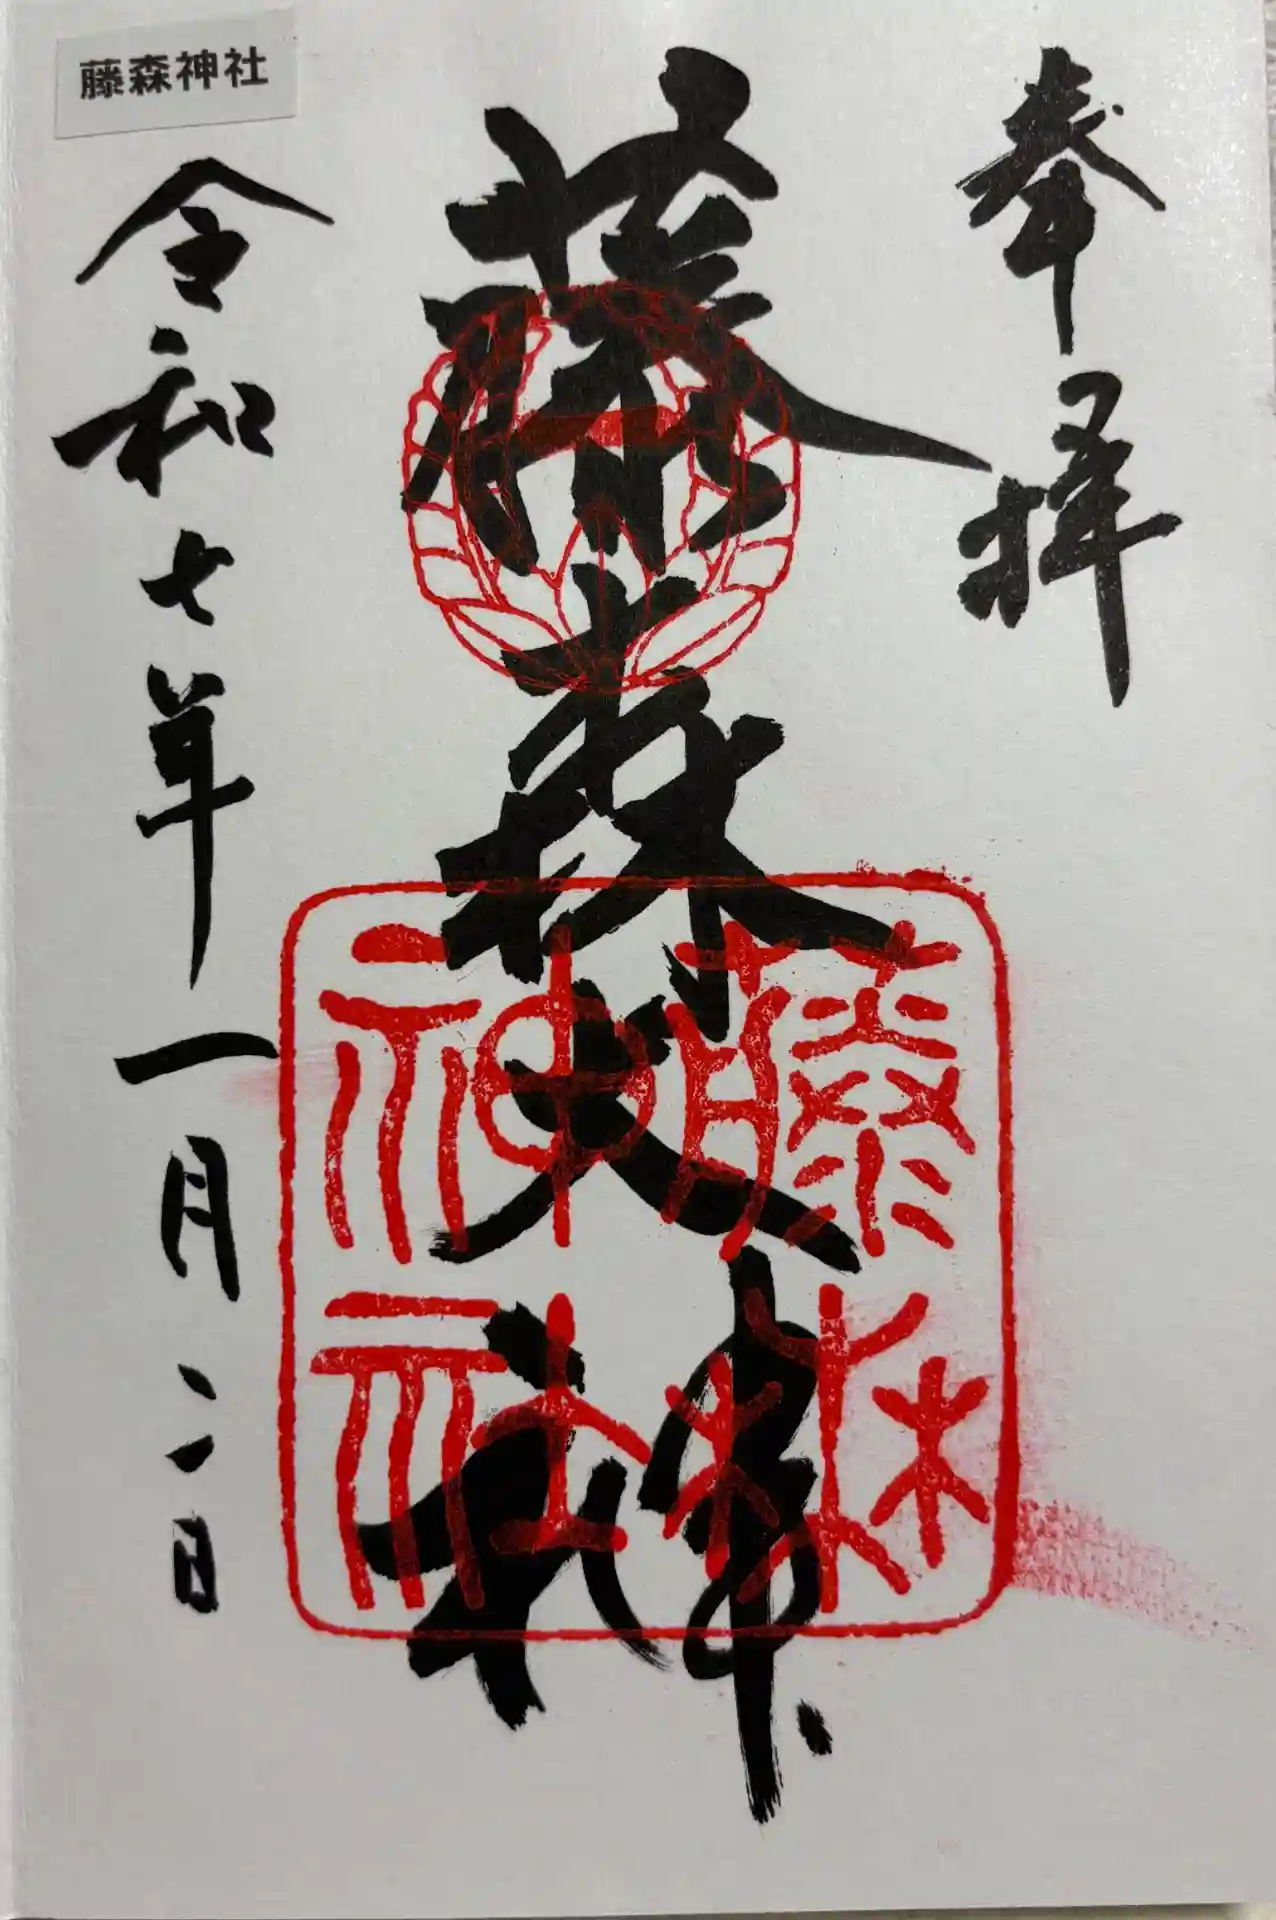 奉拝
藤森大神
藤森神社
令和七年一月二日
藤森神社